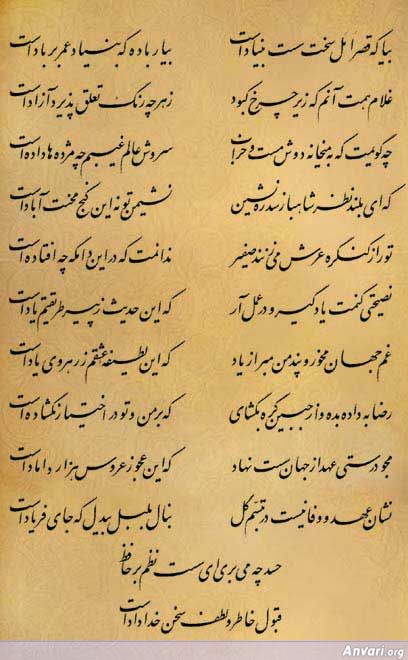 بیا که قصر امل سخت سست بنیادست بیار باده که بنیاد عمر بر بادست
غلام همت آنم که زیر چرخ کبود زهر چه رنگ تعلق پذیرد آزادست
چه گویمت که به میخانه دوش مست و خراب سروش عالم غیبم چه مژده‌ها دادست
که ای بلند نظر شاهباز سدره نشین نشیمن تو نه این کنج محنت آبادست
تو را ز کنگره عرش می‌زنند صفیر ندانمت که در این دامگه چه افتادست
نصیحتی کنمت یاد گیر و در عمل آر که این حدیث ز پیر طریقتم یادست
غم جهان مخور و پند من مبر از یاد که این لطیفه عشقم ز رهروی یادست
رضا به داده بده وز جبین گره بگشای که بر من و تو در اختیار نگشادست
مجو درستی عهد از جهان سست نهاد که این عجوز عروس هزار دامادست
نشان عهد و وفا نیست در تبسم گل بنال بلبل بیدل که جای فریادست
حسد چه می‌بری ای سست نظم بر حافظ
قبول خاطر و لطف سخن خدادادست
Anvari.org